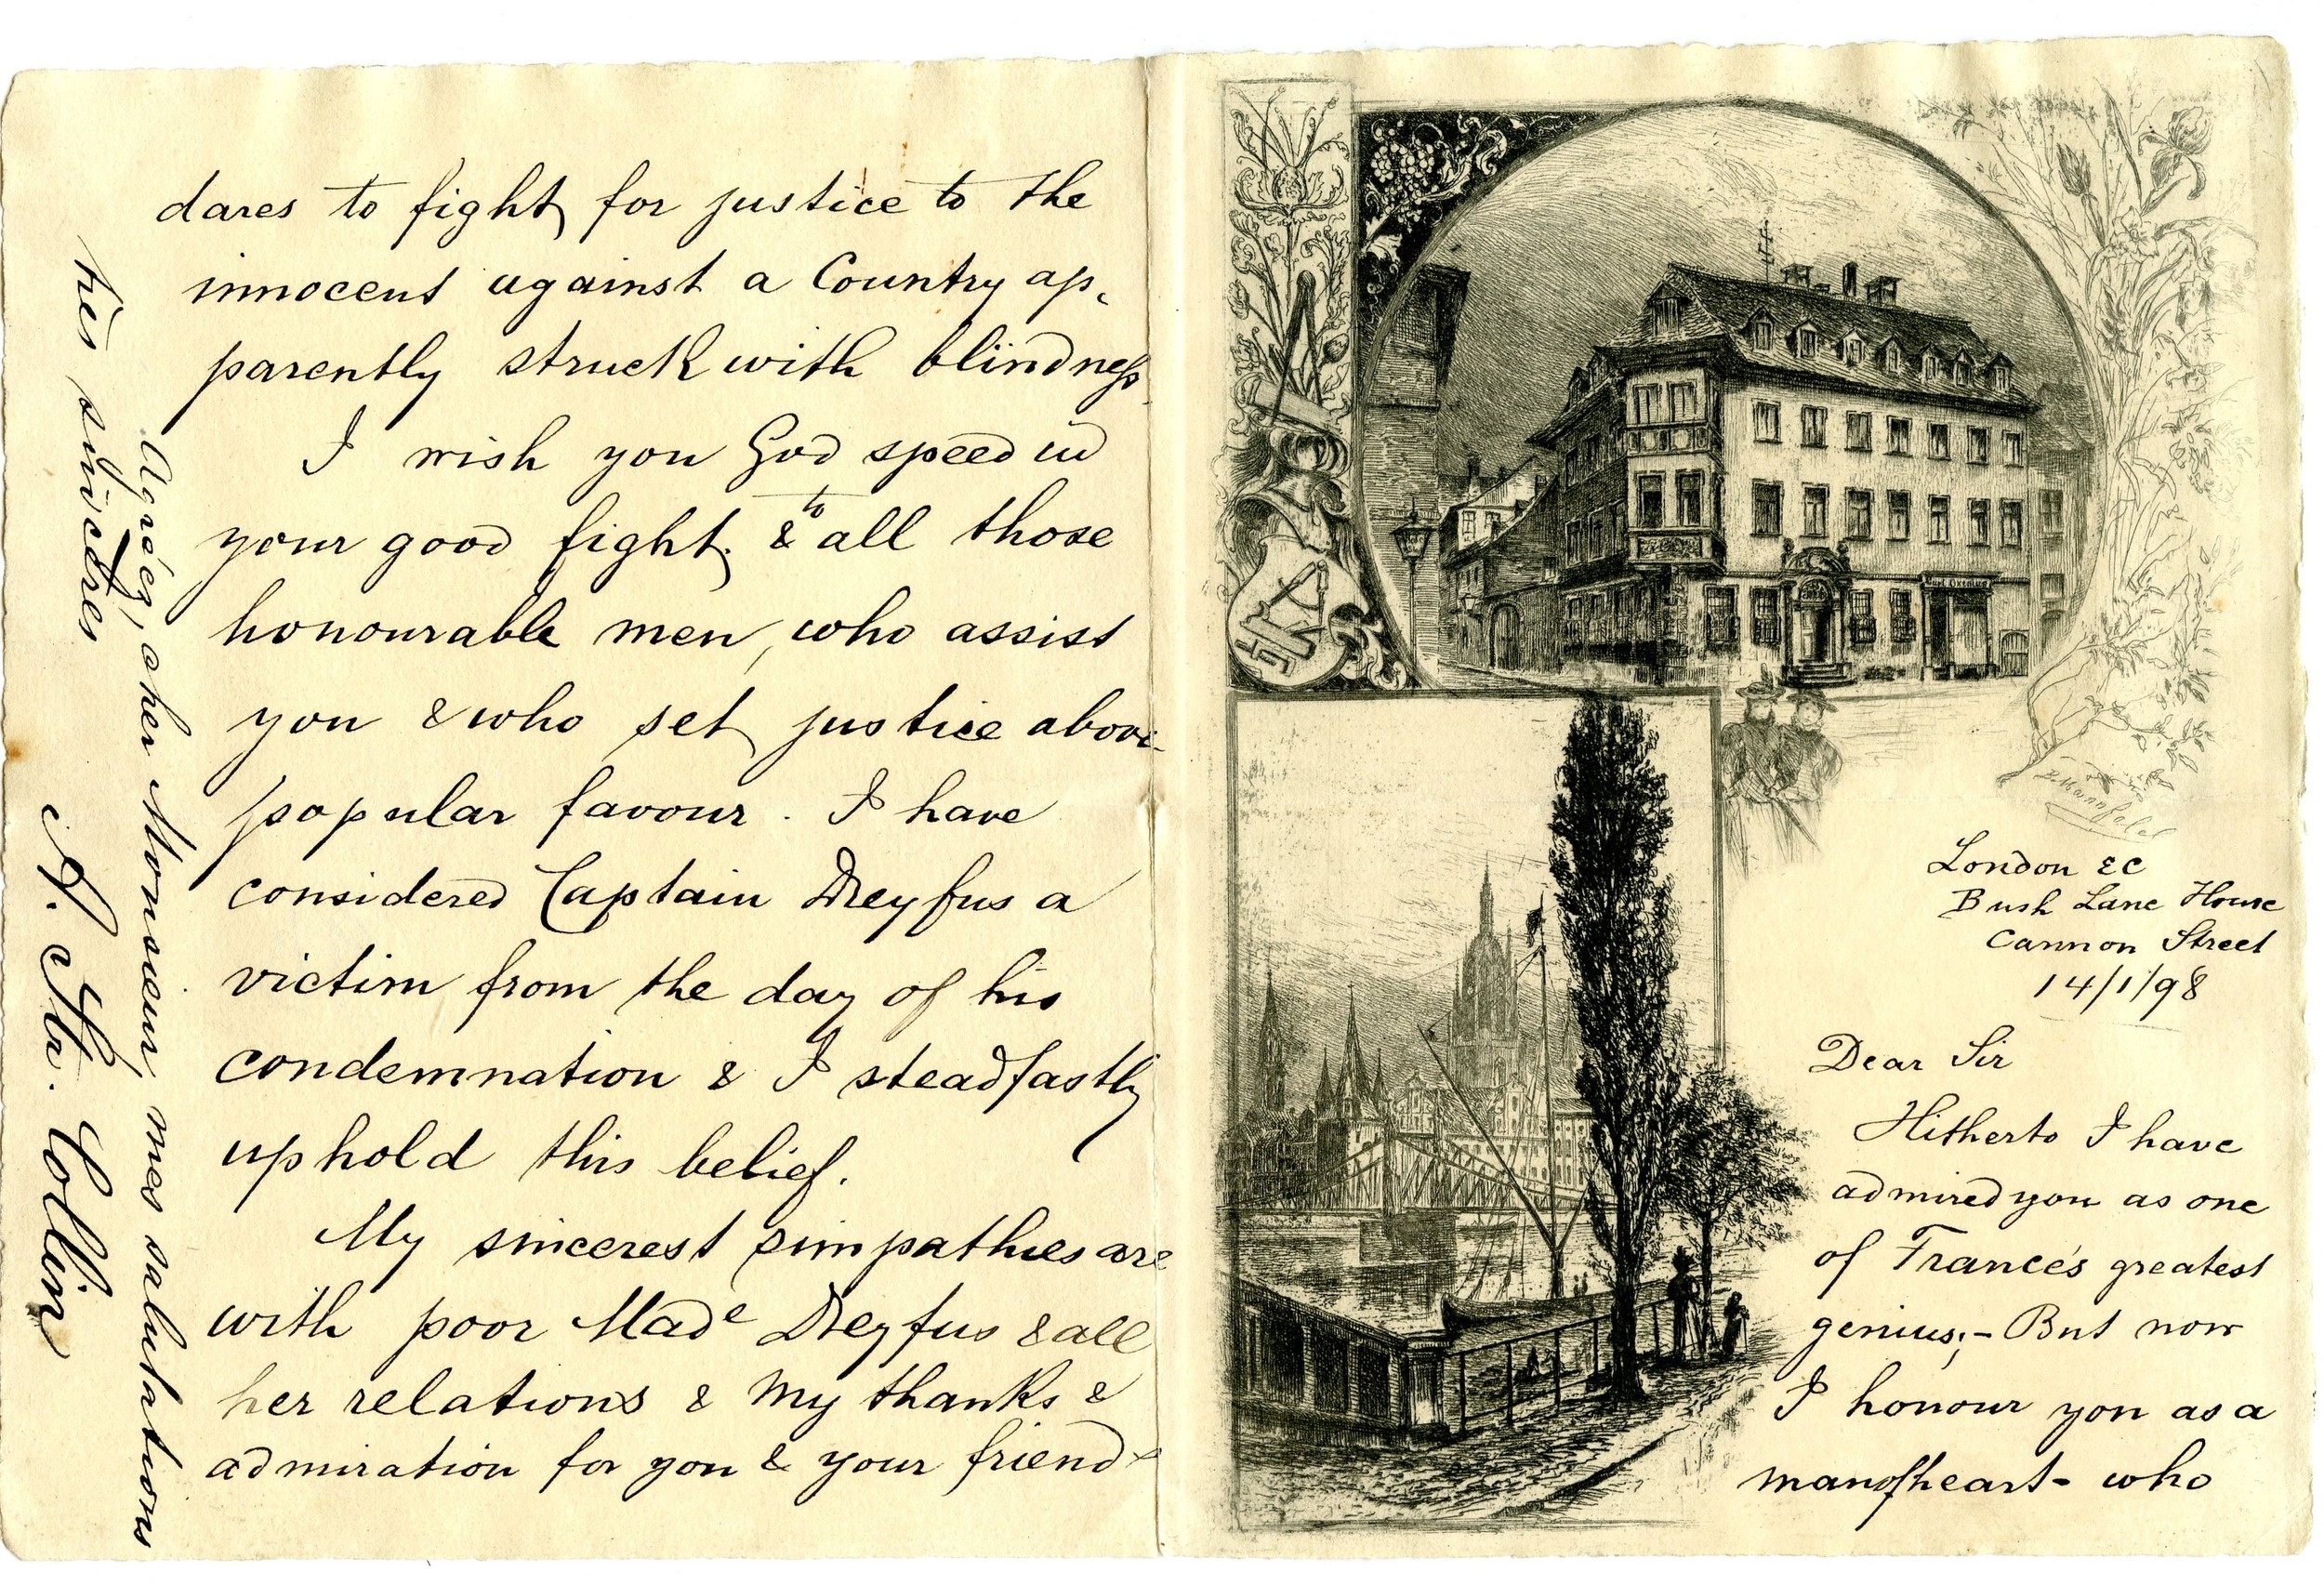 London EC
Bush Lane House
Cannon Street
14/1/98
Dear Sir
Hitherto I have
admired you as one
of France's greatest
genius;- But now
I honour you as a
man of heart - who
dares to fight for justice to the
innocent against a Country ap-
parently struck with blindness
I wish you God speed in
your good fight. & to all those
honourable men, who assist
you & who set justice above
popular favour. I have
considered Captain Dreyfus a
victim from the day of his
condemnation & I steadfastly
uphold this belief.
My sincerest simpathies are
with poor Made Dreyfus & all
her relations & my thanks &
admiration for you & your friends
Agréez, cher Monsieur, mes salutations
très sincères
Collin